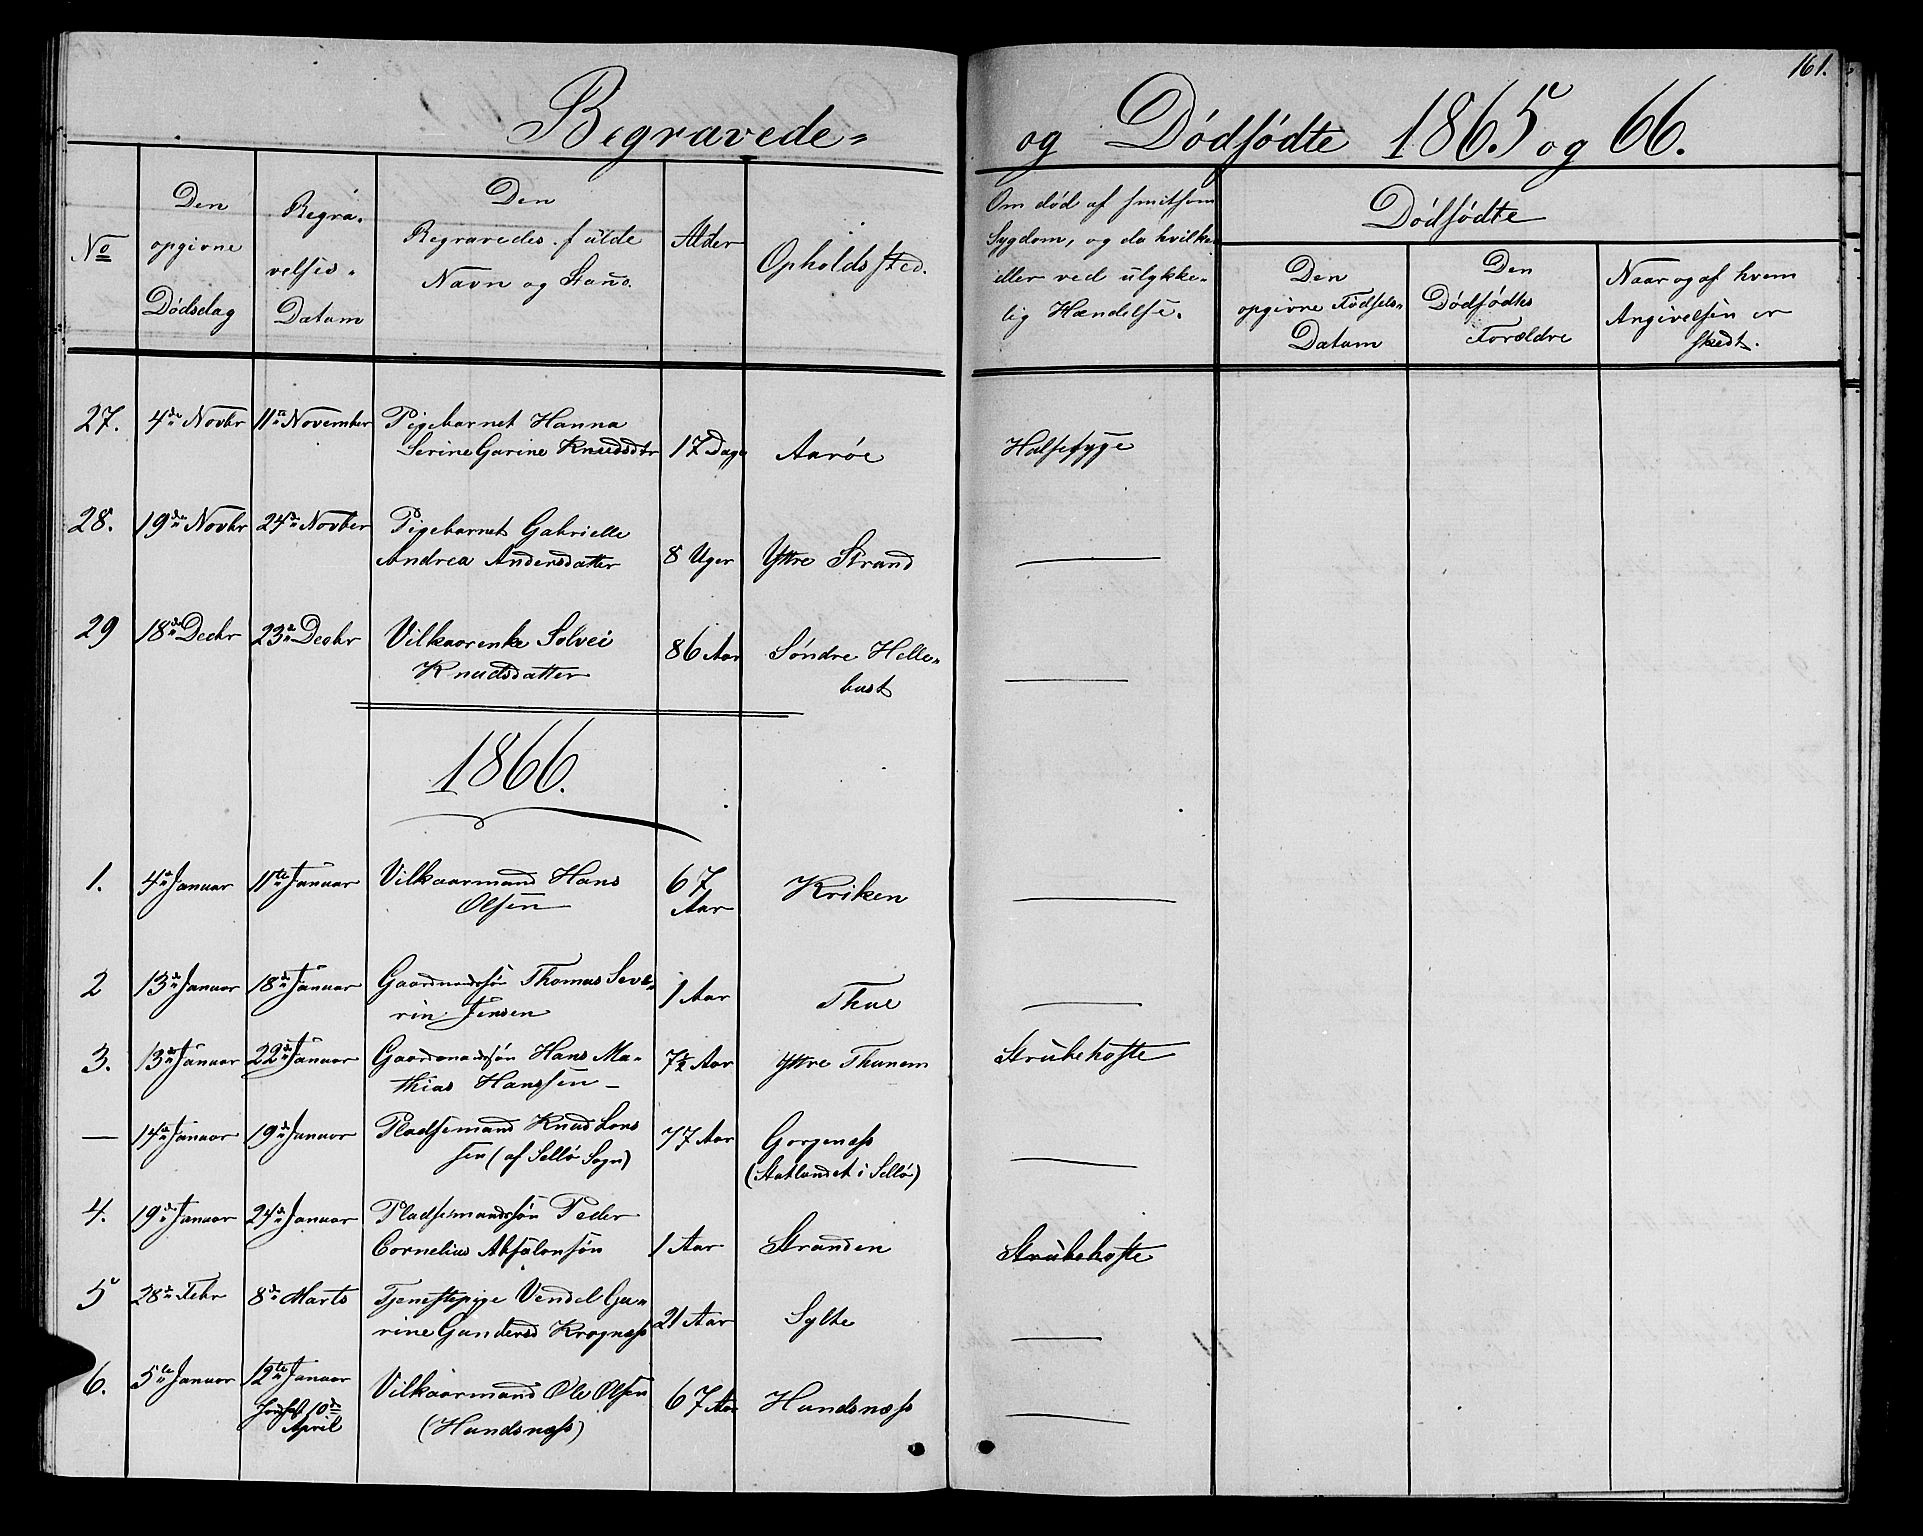 161.
Begravede = og Dödfödte 1865 og 66.
No
Den opgivne Dödsdag
Begra- velses- Datum
Den Begravedes fulde Navn og Stand.
Alder
Opholdssted.
Om död af smitsom Sygdom, og da hvilken eller ved ulykke- lig Hændelse.
Dödfödte
Den opgivne Födsels- Datum
Den Dödfödtes Forældre
Naar og af hvem Angivelsen er skedt.
27. 4de Novbr 11te November Pigebarnet Hanna
Serine Garine Knudsdtr 17 Dage Aaröe Halsesyge
28. 19de Novbr 24de Novber Pigebarnet Gabrielle
Andrea Andersdatter 8 Uger Yttre Strand
29 18de Decbr 23de Decbr Vilkaarenke Sølvei
Knudsdatter 86 Aar Söndre Helle-
bust
1866.
1. 4de Januar 11te Januar Vilkaarmand Hans
Olsen 67 Aar Kriken
2 13de Januar 18de Januar Gaardmandssön Thomas Seve-
rin Jensen 1 Aar Thue
3. 13de Januar 22de Januar Gaardmandssön Hans Ma-
thias Hanssen 7½ Aar Yttre Thunem Strubehoste
— 14de Januar 19de Januar Pladsemand Knud Lars
sen (af Sellö Sogn) 77 Aar Gorgenæss
(Statlandet i Sellö)
4. 19de Januar 24de Januar Pladsemandssön Peder
Cornelius Absalonsön 1 Aar Stranden Strubehoste
5 28de Febr 8de Marts Tjenestepige Vendel Ga-
rine Gundersd Krognæss 21 Aar Sylte
6. 5te Januar 12te Januar Vilkaarmand Ole Olsen 67 Aar Hundsnæss
10de April (Hundsnæss)